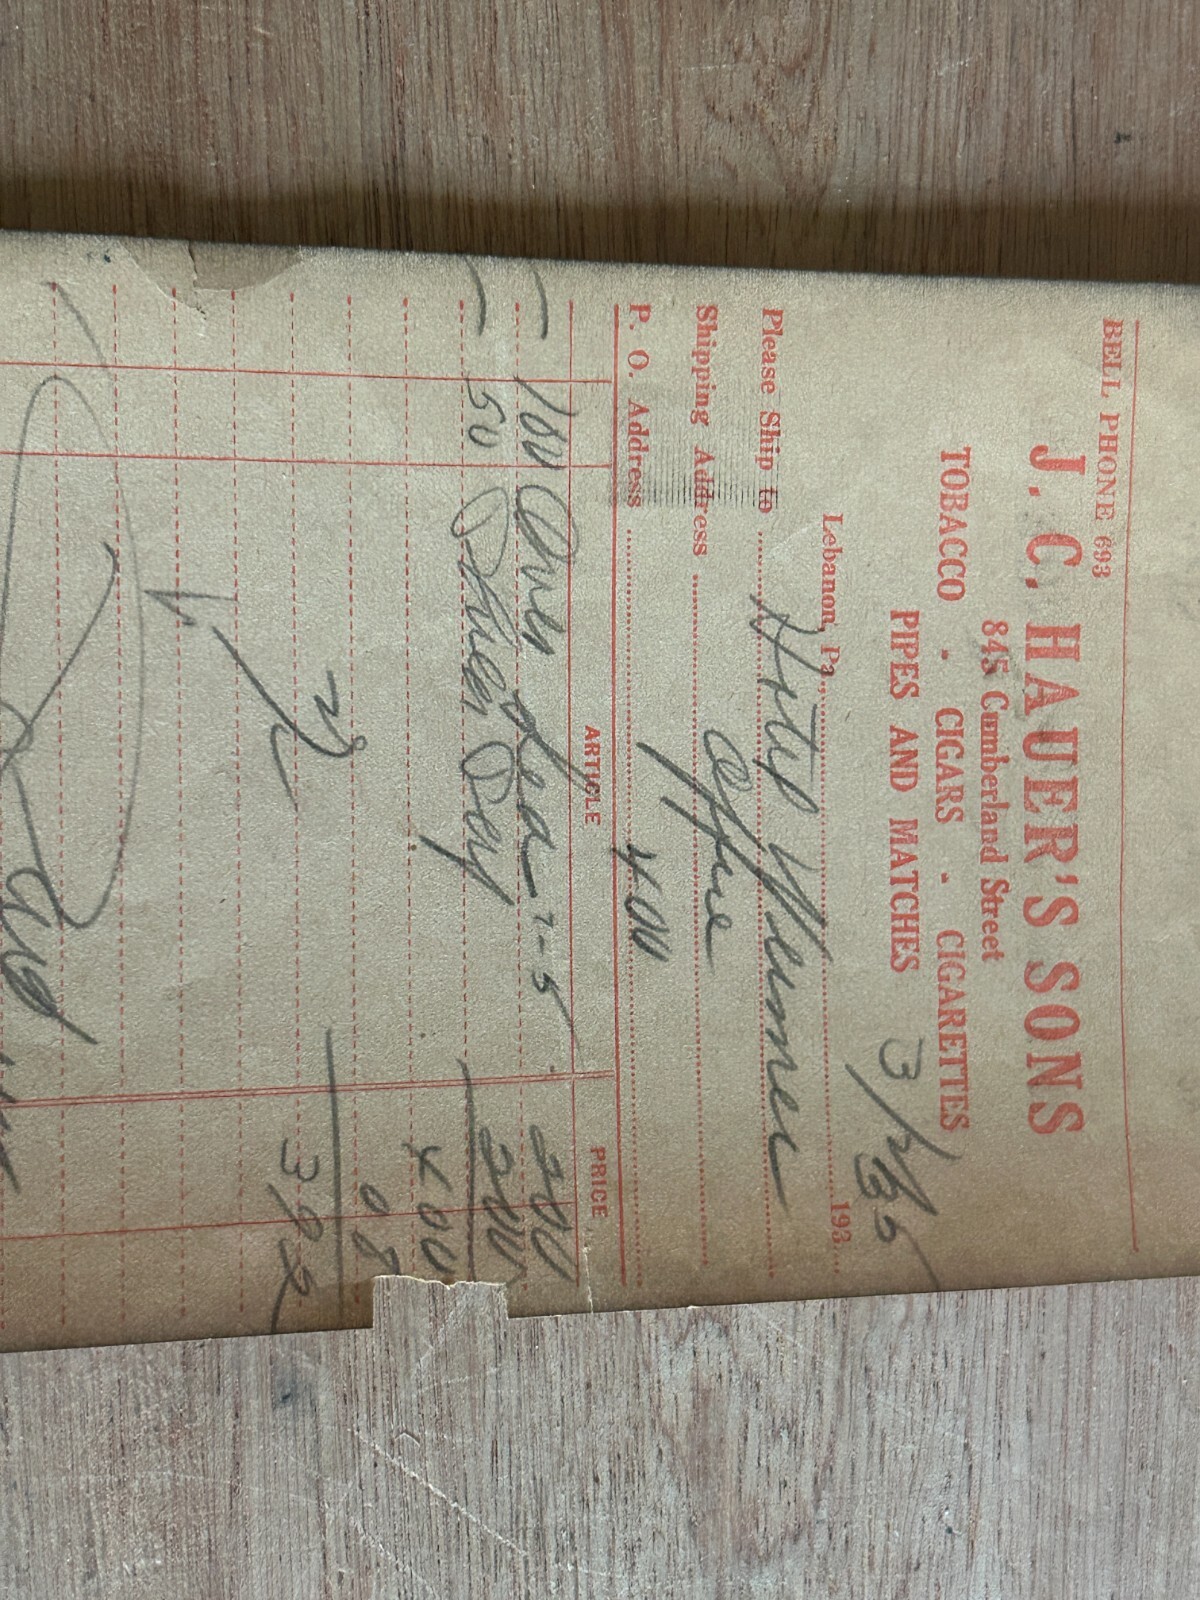 BELL PHONE 693
J. C. HAUER'S SONS
845 Cumberland Street
TOBACCO - CIGARS - CIGARETTES
PIPES AND MATCHES
3/2/35
Lebanon, Pa. 193
Please Ship to Hotel Weimer
Shipping Address Office
P. O. Address 400
ARTICLE PRICE
100 7-5 200
50 200
400
2% 08
392